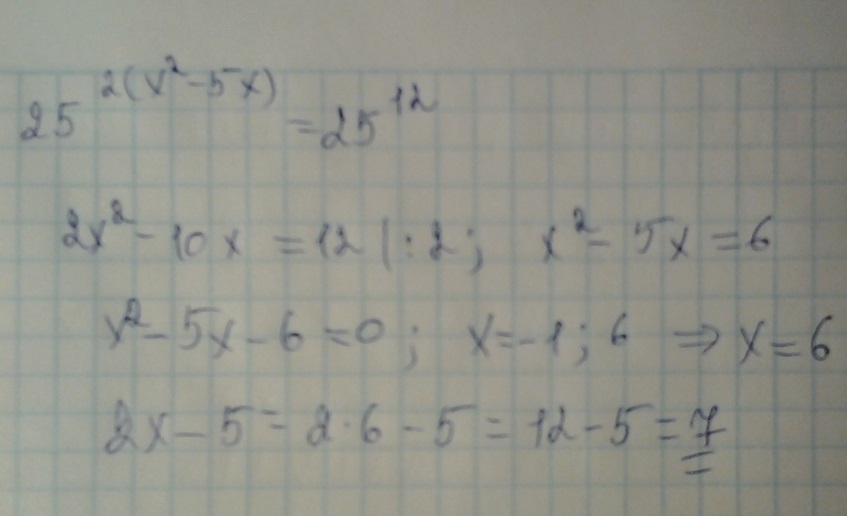 25^{2(x²-5x)} = 25^{12}
2x² - 10x = 12 |:2; x² - 5x = 6
x² - 5x - 6 = 0; x = -1; 6 ⇒ x = 6
2x - 5 = 2·6 - 5 = 12 - 5 = 7